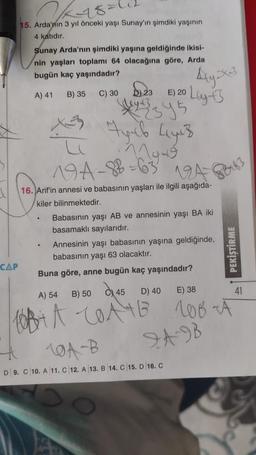 15. Arda'nın 3 yıl önceki yaşı Sunay'ın şimdiki yaşının
4 katıdır.
Sunay Arda'nın şimdiki yaşına geldiğinde ikisi-
nin yaşları toplamı 64 olacağına göre, Arda
bugün kaç yaşındadır?
A) 41 B) 35 C) 30 D) 23 E) 20
16. Arif'in annesi ve babasının yaşları ile ilgili aşağıda-
kiler bilinmektedir.
• Babasının yaşı AB ve annesinin yaşı BA iki
basamaklı sayılarıdır.
• Annesinin yaşı babasının yaşına geldiğinde,
babasının yaşı 63 olacaktır.
Buna göre, anne bugün kaç yaşındadır?
A) 54 B) 50 C) 45 D) 40 E) 38
PEKİŞTİRME
41
CAP
10A-B
9A-9B
D 9. C 10. A 11. C 12. A 13. B 14. C 15. D 16. C